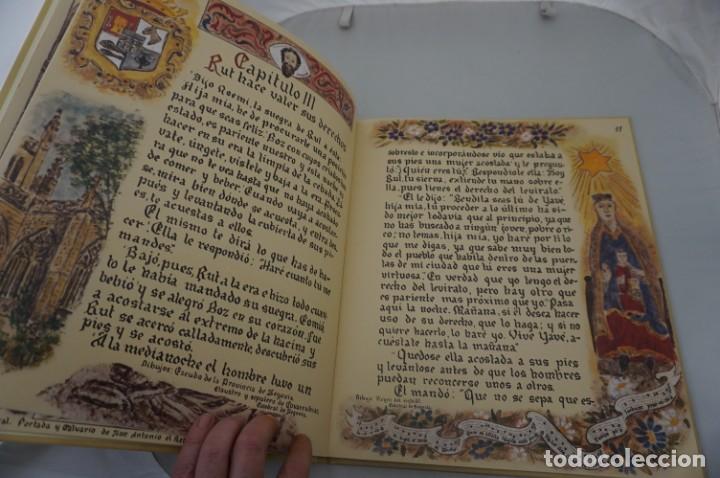 Capítulo III
Rut hace valer sus derechos
"Dijo Noemi, la suegra de Rut a ésta:
Hija mía, he de procurarte una posición
para que seas feliz. Boz con cuyos criados has
estado, es pariente nuestro y esta noche va a
hacer en su era la limpia de la cebada. Lá-
vate, úngete, vístete y baja a la era. Procu-
ra que no te vea hasta que no haya acabado
de comer y beber. Cuando vaya a acostar-
se, mira bien donde se acuesta, y entra des-
pués y levantando la cubierta de sus pi-
es, te acuestas a ellos.
El mismo te dirá lo que has de ha-
cer". Ella le respondió: "Haré cuanto tú me
mandes".
"Bajó, pues, Rut a la era e hizo todo cuan-
to le había mandado su suegra. Comió,
bebió y se alegró Boz en su corazón, fue
a acostarse al extremo de la hacina y
Rut se acercó calladamente, descubrió sus
pies y se acostó.
A la medianoche el hombre tuvo un
Dibujos: Escudo de la Provincia de Segovia.
Claustro y sepulcro de
Catedral de Segovia.
Portada y Calvario de San Antonio el Real
17
sobresto e incorporándose vio que estaba a
sus pies una mujer acostada y le pregun-
tó: ¿Quién eres tú?. Respondiole ella: Soy
Rut, tu sierva, extiende tu mano sobre e-
lla, pues tienes el derecho del levirato".
"El le dijo: "Bendita seas tú de Yavé,
hija mía, tú proceder a lo último ha si-
do mejor todavía que al principio, ya que
no has buscado a ningún joven, pobre o ri-
co; no temas, hija mía, yo haré por ti lo
que me digas, ya que sabe muy bien to-
do el pueblo que habita dentro de las puer-
tas de mi ciudad que tú eres una mujer
virtuosa". En verdad que yo tengo el de-
recho del levirato, pero hay otro que
es pariente mas próximo que yo. Pasa
aquí la noche. Mañana, si él desea hacer
uso de su derecho, que lo haga; y si no
quiere hacerlo, lo haré yo. Vive Yavé, a-
cuéstate hasta la mañana"
"Quedose ella acostada a sus pies
y levántose antes de que los hombres
puedan reconcerse unos a otros.
El mandó: "Que no se sepa que es-
Catedral de Segovia.
todocoleccion
todocoleccion.net